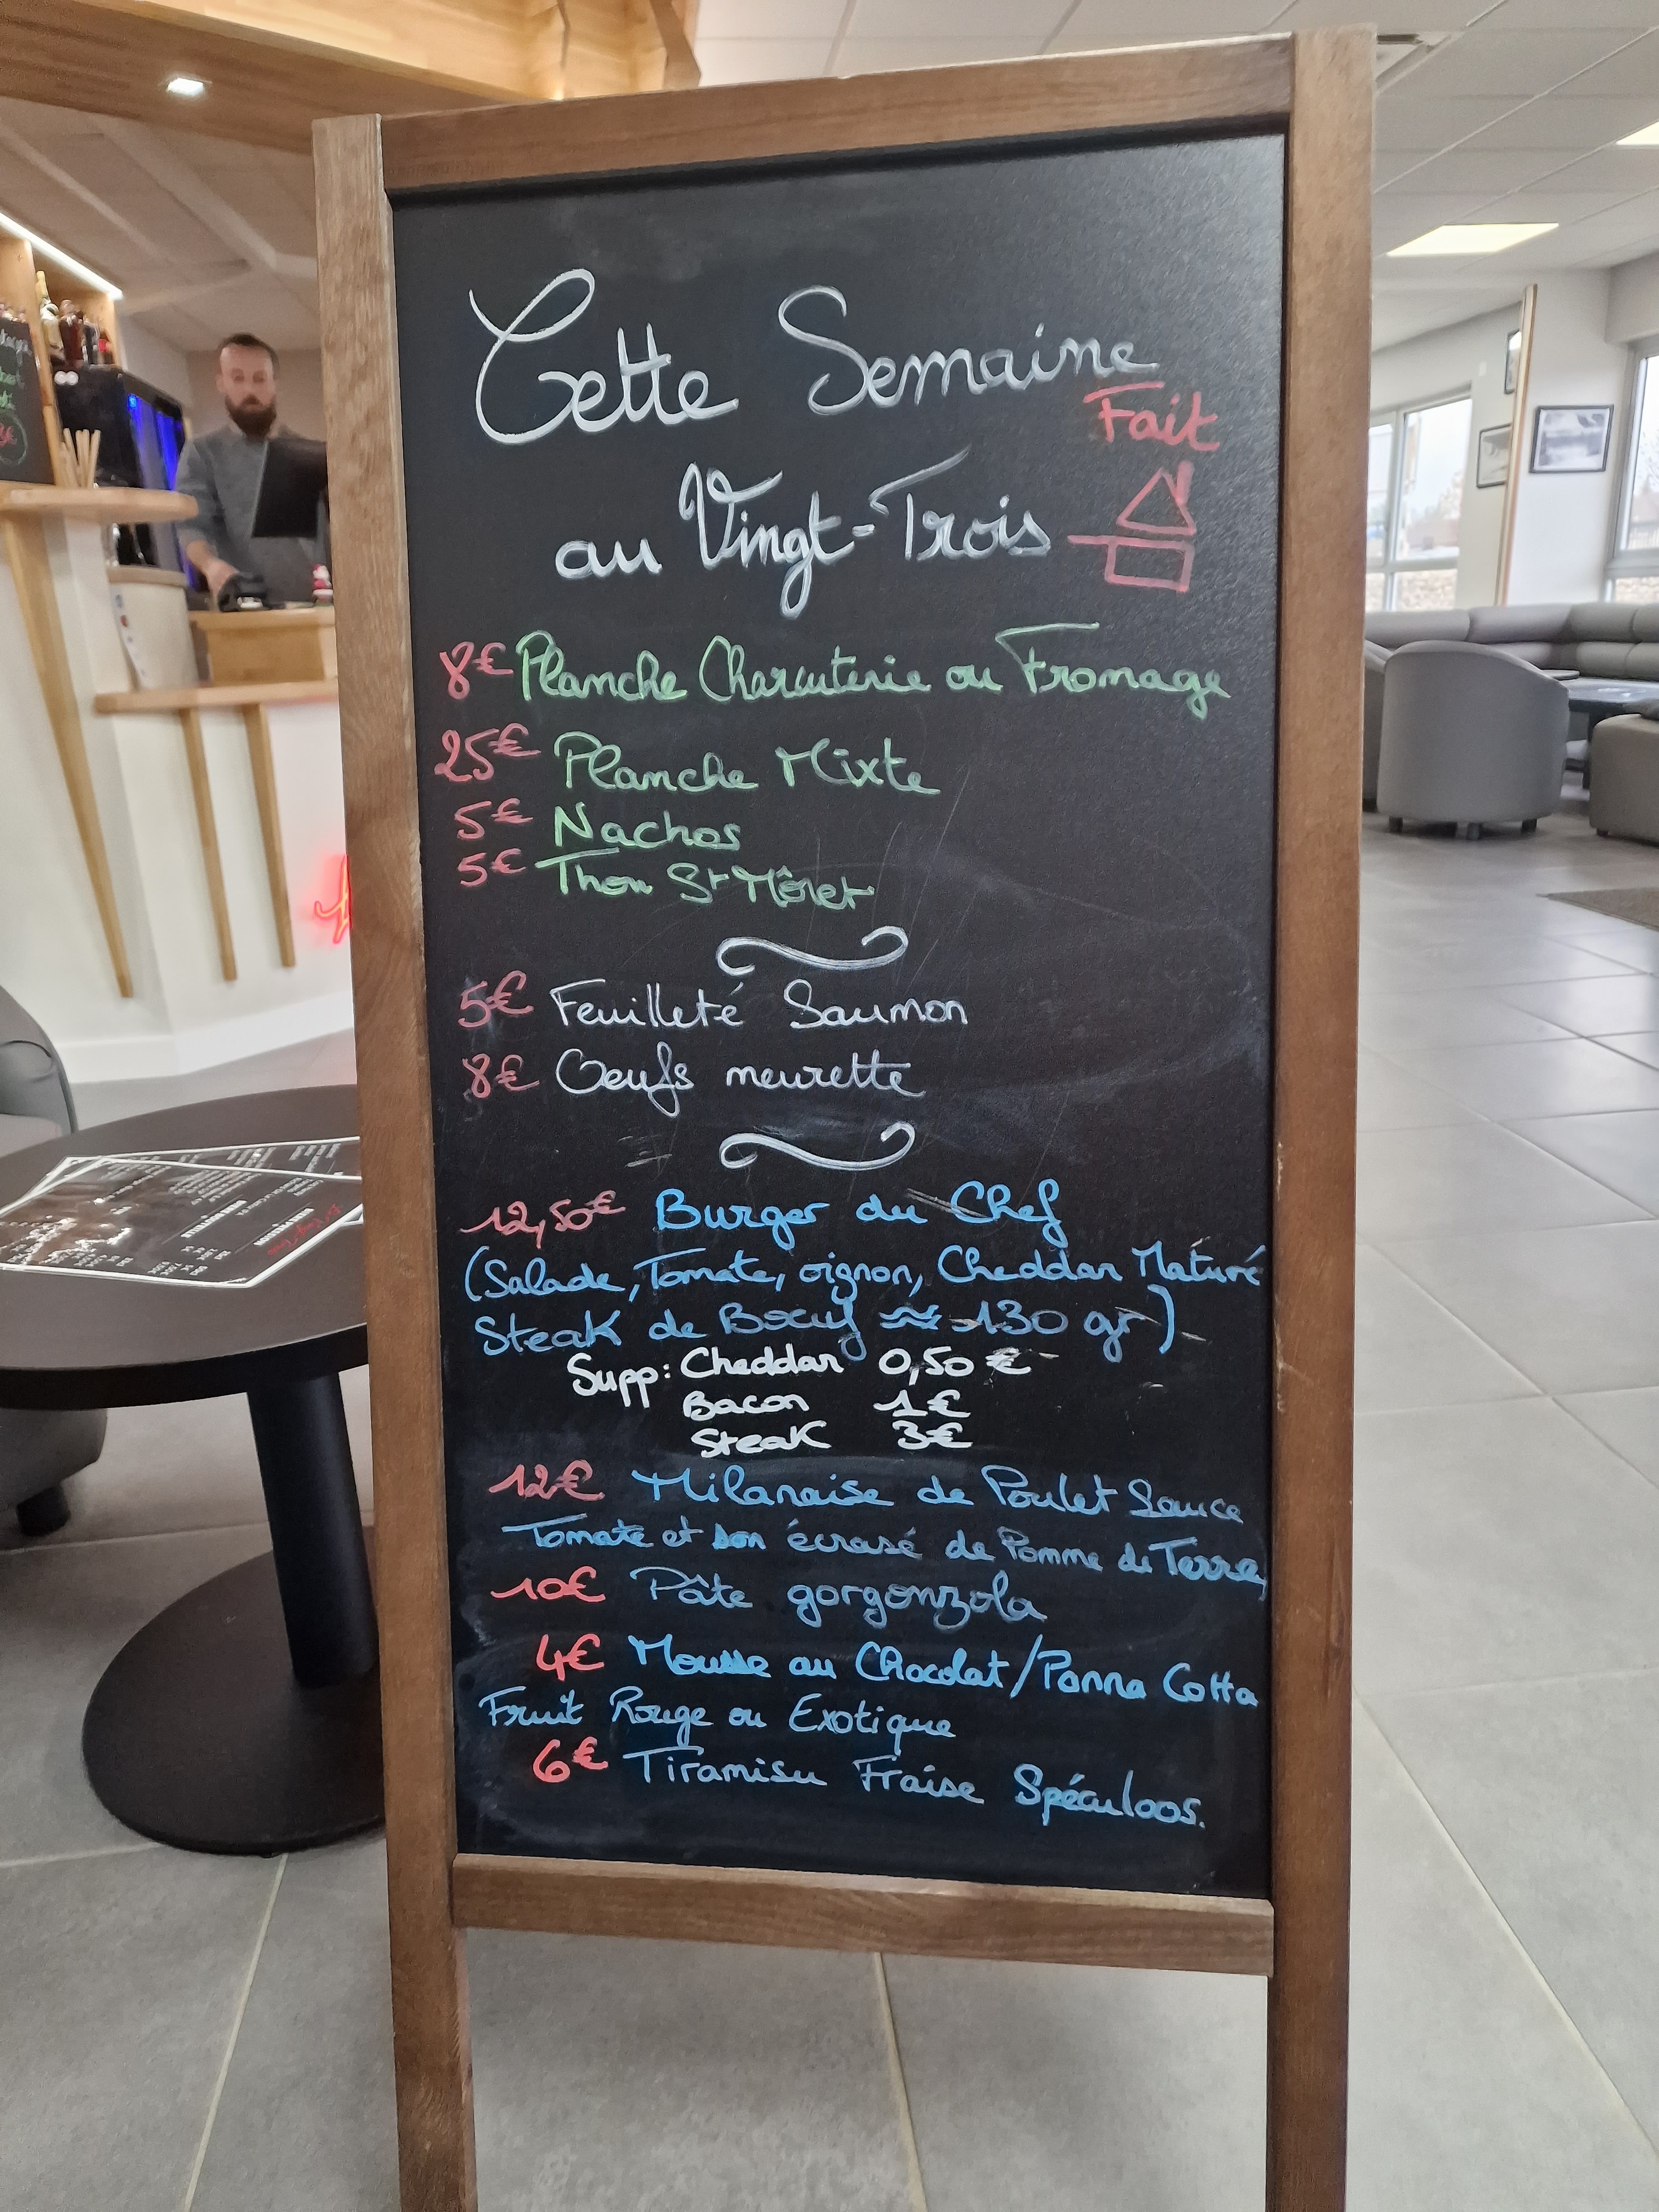 Cette Semaine
Fait
au Vingt-Trois
8€ Planche Charcuterie ou Fromage
25€ Planche Mixte
5€ Nachos
5€ Thon St Môret
5€ Feuilleté Saumon
8€ Oeufs meurette
12,50€ Burger du Chef
(Salade, Tomate, oignon, Cheddar Maturé
Steak de Boeuf ≈ 130 gr)
Supp: Cheddar 0,50 €
Bacon 1€
Steak 3€
12€ Milanaise de Poulet Sauce
Tomate et son écrasé de Pomme de Terre,
10€ Pâte gorgonzola
4€ Mousse au Chocolat/Panna Cotta
Fruit Rouge ou Exotique
6€ Tiramisu Fraise Spéculoos.